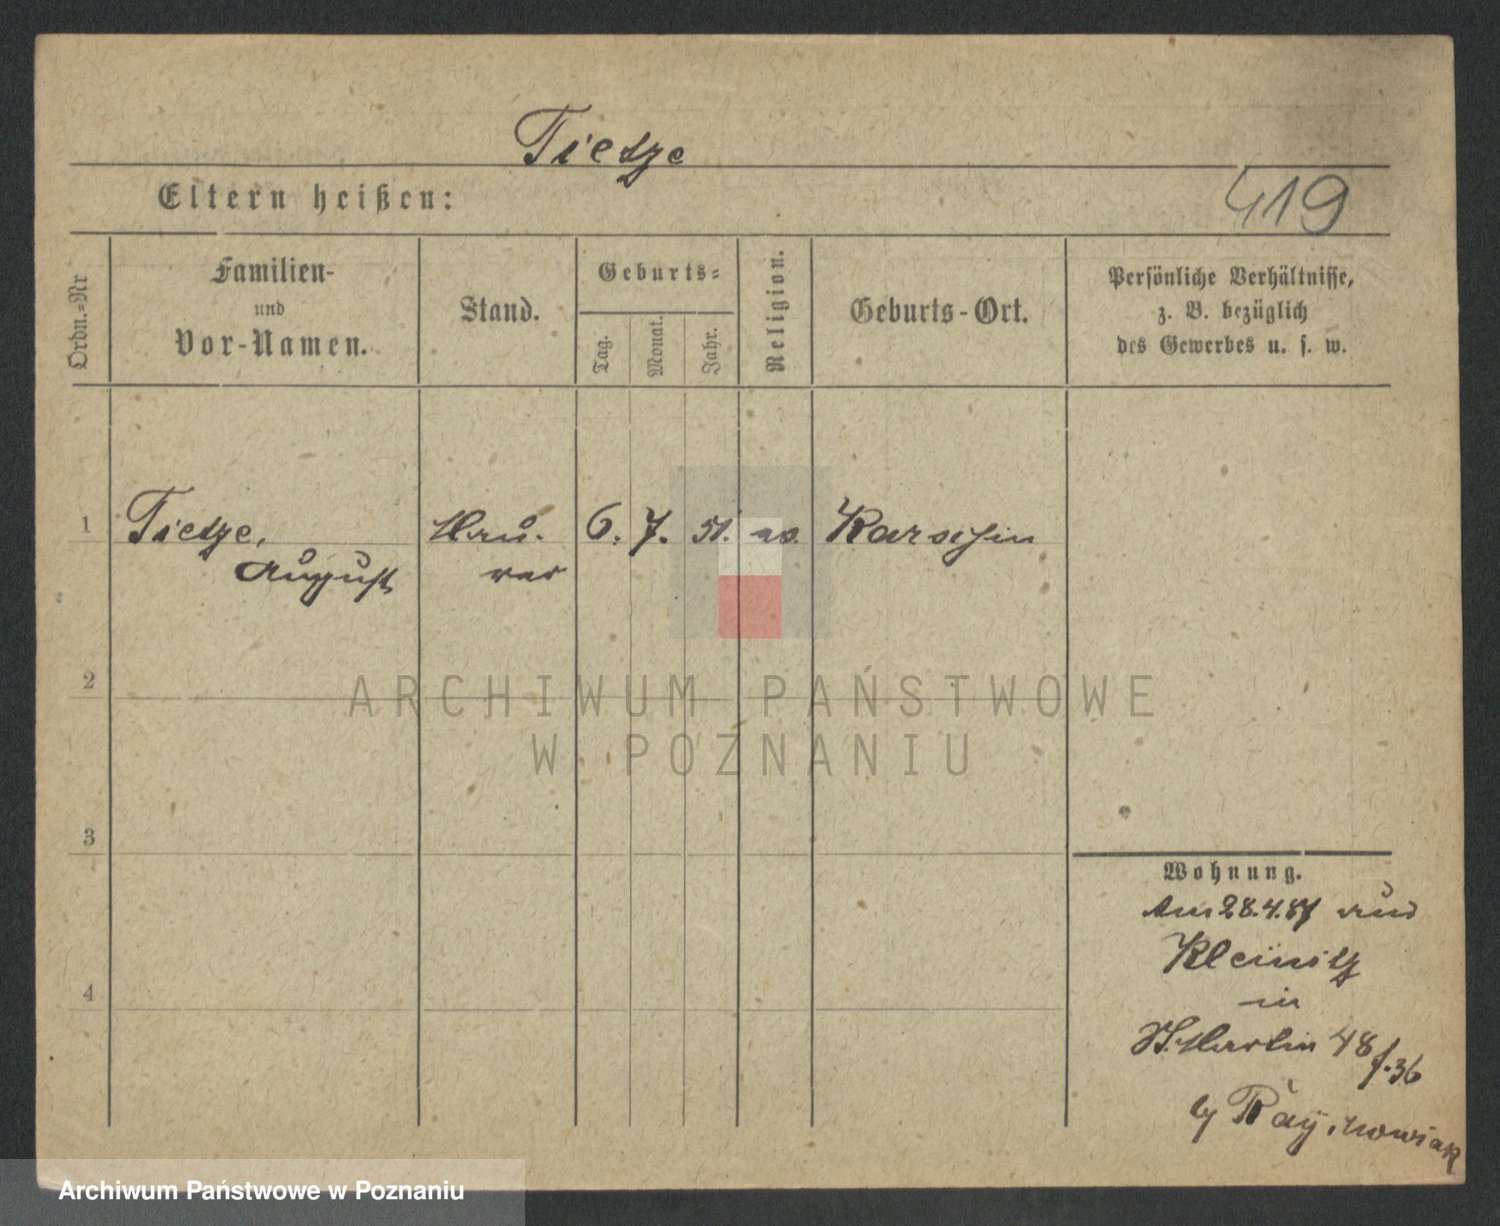 Tietze
Eltern heißen:
419
Ordn.=Nr
Familien-
und
Vor-Namen.
Stand.
Geburts=
Tag.
Monat.
Jahr.
Religion.
Geburts-Ort.
Persönliche Verhältnisse,
z. B. bezüglich
des Gewerbes u. s. w.
1
Tietze,
August
Mau-
rer
6.
7.
51.
ev.
Karschin
2
ARCHIWUM PAŃSTWOWE
W POZNANIU
3
Wohnung.
Am 28.4.87 aus
Kleinitz
in
4
St. Martin 48
f. 36
Archiwum Państwowe w Poznaniu